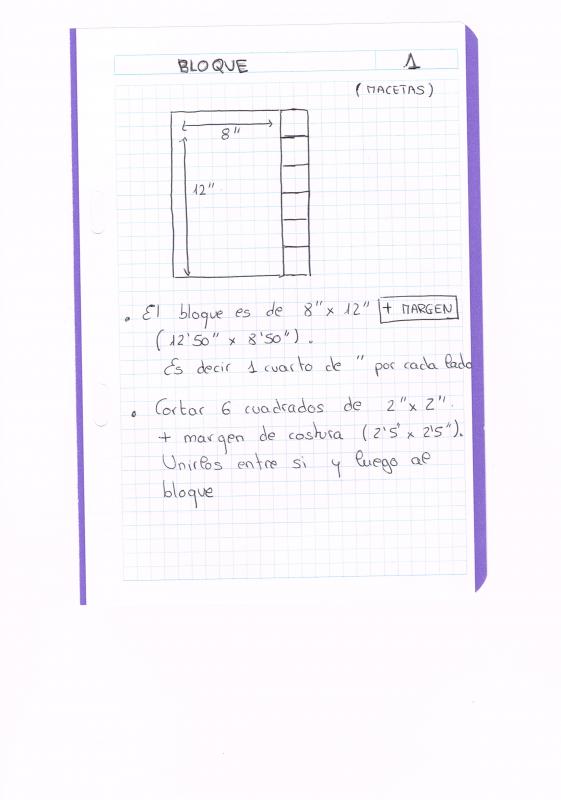 BLOQUE 1
(MACETAS)
8"
12"
• El bloque es de 8" x 12" + MARGEN
(12'50" x 8'50").
Es decir 1 cuarto de " por cada lado
• Cortar 6 cuadrados de 2" x 2".
+ margen de costura (2'5" x 2'5").
Unirlos entre si y luego al
bloque